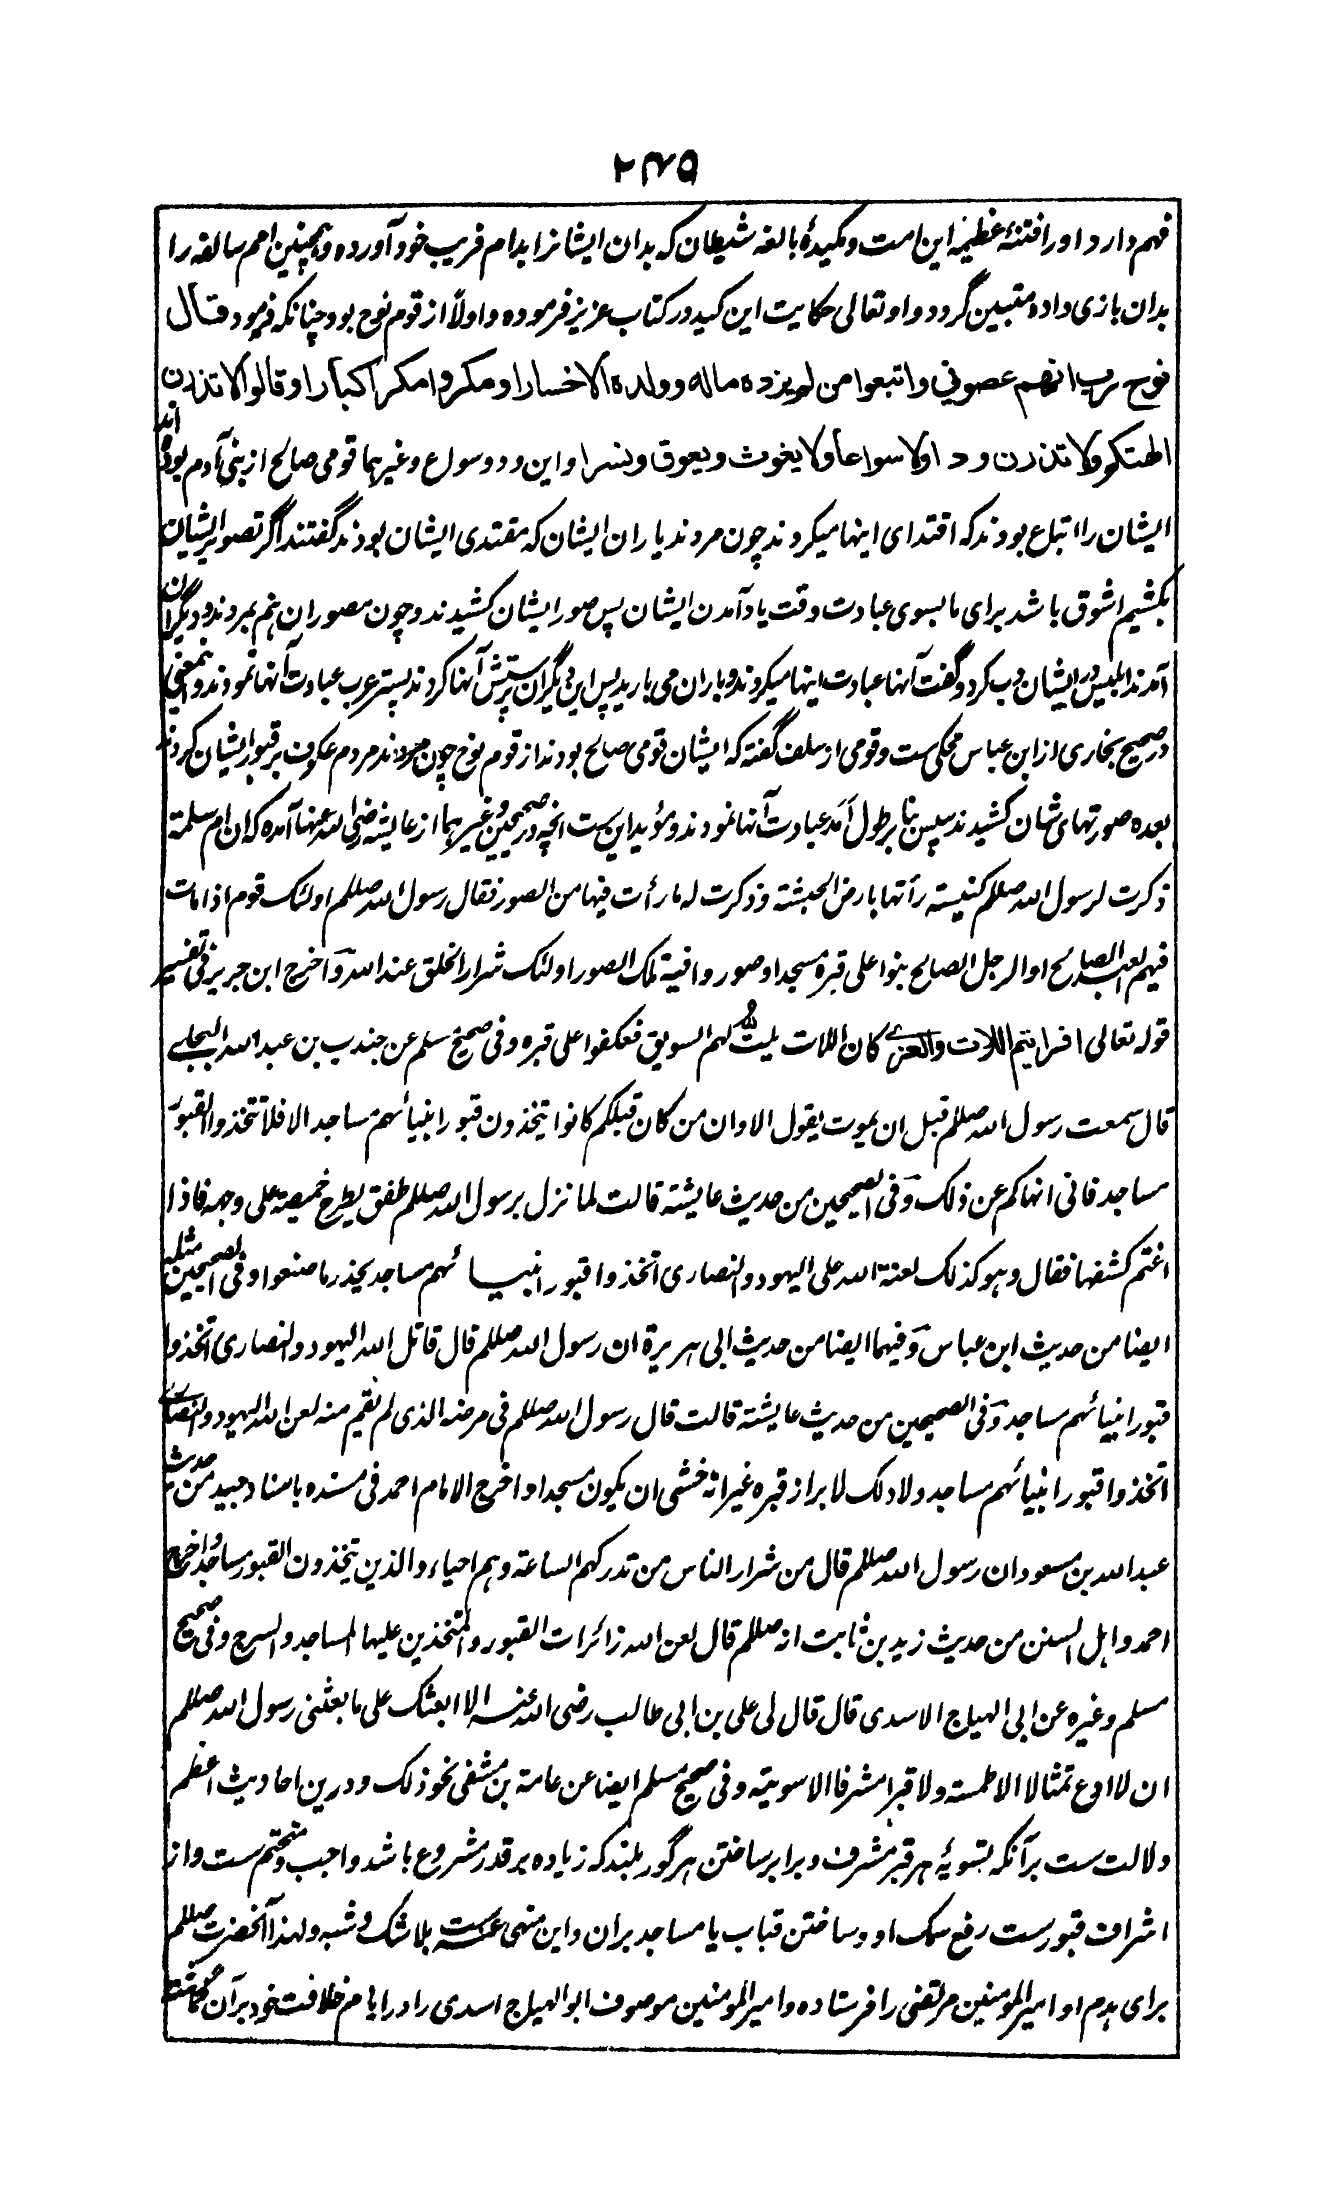 ۲۴۵
فهم دارد اورا فتنهٔ عظیمه این امت و مکیدهٔ بالغه شیطان که بدان ایشانرا بدام فریب خود آورده و همچنین امم سالفه را
بدان بازی داده متبین گردد و او تعالی حکایت این کید در کتاب عزیز فرموده و اولاً از قوم نوح بود چنانکه فرمود قال
نوح رب انهم عصوني واتبعوا من لم يزده ماله وولده الا خسارا ومكروا مكرا كبارا وقالوا لا تذرن
الهتكم ولا تذرن ودا ولا سواعا ولا يغوث ويعوق ونسرا و این ود و سواع و غیرهما قومی صالح از بنی آدم بوده اند
ایشان را اتباع بودند که اقتدای اینها میکردند چون مردند یاران ایشان که مقتدی ایشان بودند گفتند اگر تصویر ایشان
بکشیم اشوق باشد برای ما بسوی عبادت وقت یاد آمدن ایشان پس صور ایشان کشیدند و چون مصوران هم بمردند و دیگران
آمدند ابلیس در ایشان دب کرد و گفت آنها عبادت اینها میکردند و باران می بارید پس این دیگران پرستش آنها کردند پستر عرب عبادت آنها نمودند و اینمعنی
در صحیح بخاری از ابن عباس محکی ست و قومی از سلف گفته که ایشان قومی صالح بودند از قوم نوح چون مردند مردم عکوف بر قبور ایشان کردند
بعده صورتهای شان کشیدند سپس بنا بر طول امد عبادت آنها نمودند و مؤید این ست انچه در صحیحین و غیرهما از عایشه رضی الله عنها آمده که ان ام سلمة
ذكرت لرسول الله صللم كنيسة رأتها بارض الحبشة وذكرت له ما رأت فيها من الصور فقال رسول الله صللم اولئك قوم اذا مات
فيهم العبد الصالح او الرجل الصالح بنوا على قبره مسجدا وصوروا فيه تلك الصور اولئك شرار الخلق عند الله واخرج ابن جرير في تفسير
قوله تعالى افرايتم اللات والعزى كان اللات يلت لهم السويق فعكفوا على قبره وفي صحيح مسلم عن جندب بن عبد الله البجلي
قال سمعت رسول الله صللم قبل ان يموت يقول الا وان من كان قبلكم كانوا يتخذون قبور انبيائهم مساجد الا فلا تتخذوا القبور
مساجد فاني انهاكم عن ذلك وفي الصحيحين من حديث عايشة قالت لما نزل برسول الله صللم طفق يطرح خميصة على وجهه فاذا
اغتم كشفها فقال وهو كذلك لعنة الله على اليهود والنصارى اتخذوا قبور انبيائهم مساجد يحذر ما صنعوا وفي الصحيحين مثله
ايضا من حديث ابن عباس وفيهما ايضا من حديث ابي هريرة ان رسول الله صللم قال قاتل الله اليهود والنصارى اتخذوا
قبور انبيائهم مساجد وفي الصحيحين من حديث عايشة قالت قال رسول الله صللم في مرضه الذي لم يقم منه لعن الله اليهود والنصارى
اتخذوا قبور انبيائهم مساجد ولا ذلك لابراز قبره غير انه خشي ان يكون مسجدا واخرج الامام احمد في مسنده باسناد جيد من حديث
عبد الله بن مسعود ان رسول الله صللم قال من شرار الناس من تدركهم الساعة وهم احياء والذين يتخذون القبور مساجد واخرج
احمد واهل السنن من حديث زيد بن ثابت انه صللم قال لعن الله زائرات القبور والمتخذين عليها المساجد والسرج وفي صحيح
مسلم وغيره عن ابي الهياج الاسدي قال قال لي علي بن ابي طالب رضي الله عنه الا ابعثك على ما بعثني رسول الله صللم
ان لا ادع تمثالا الا طمسته ولا قبرا مشرفا الا سويته وفي صحيح مسلم ايضا عن ثمامة بن شفي نحو ذلك و درین احادیث اعظم
دلالت ست برآنکه تسویهٔ هر قبر مشرف و برابر ساختن هر گور بلند که زیاده بر قدر مشروع باشد واجب و متحتم ست و از
اشراف قبورست رفع سمک او و ساختن قباب یا مساجد بران و این منهی عنه ست بلا شک و شبه و لهذا آنحضرت صللم
برای هدم او امیر المومنین مرتضی را فرستاده و امیر المومنین موصوف ابو الهیاج اسدی را در ایام خلافت خود برآن گماشته